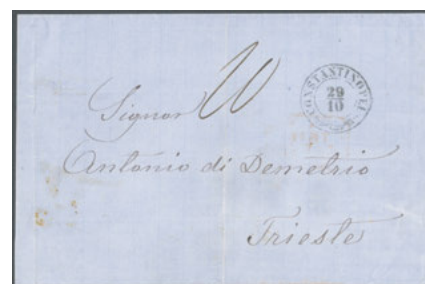 20
CONSTANTINOPEL
29
10
Signor
Antonio di Demetrio
Trieste